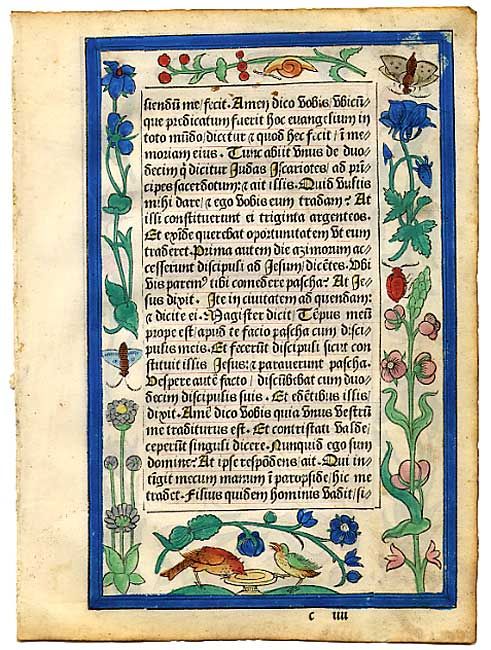 liendū me/fecit. Amen dico vobis/vbicū-
que predicatum fuerit hoc evangelium in
toto mūdo/dicetur & quod hec fecit/ī me-
moriam eius. Tunc abiit vnus de duo-
decim q̄ dicitur Judas Iscariotes/ad prī-
cipes sacerdotum: & ait illis. Quid vultis
mihi dare/& ego vobis eum tradam? At
illi constituerunt ei triginta argenteos.
Et exīde querebat oportunitatem vt eum
traderet. Prima autem die azimorum ac-
cesserunt discipuli ad Jesum/dicētes. Vbi
vis paremꝰ tibi comedere pascha? At Je-
sus dixit. Ite in civitatem ad quendam:
& dicite ei. Magister dicit Tēpus meū
prope est/apud te facio pascha cum disci-
pulis meis. Et fecerūt discipuli sicut con-
stituit illis Jesus: & paraverunt pascha.
Vespere autē facto/discūbebat cum duo-
decim discipulis suis. Et edētibus illis/
dixit. Amē dico vobis quia vnus vestrū
me traditurus est. Et contristati valde/
ceperūt singuli dicere. Nunquid ego sum
domine? At ipse respōdens ait. Qui in-
tigit mecum manum ī paropside/hic me
tradet. Filius quidem hominis vadit/si-
c iiii